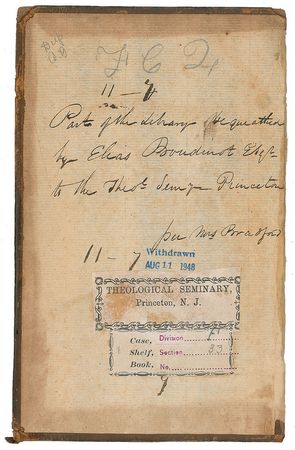 Dup
11 - 7
Part of the Library bequeathed
by Elias Boudinot Esqr
to the Theol. Semy Princeton
per Mrs Bradford
11 - 7
Withdrawn
AUG 11 1948
THEOLOGICAL SEMINARY,
Princeton, N. J.
Case, Division
Shelf, Section 23
Book, No.